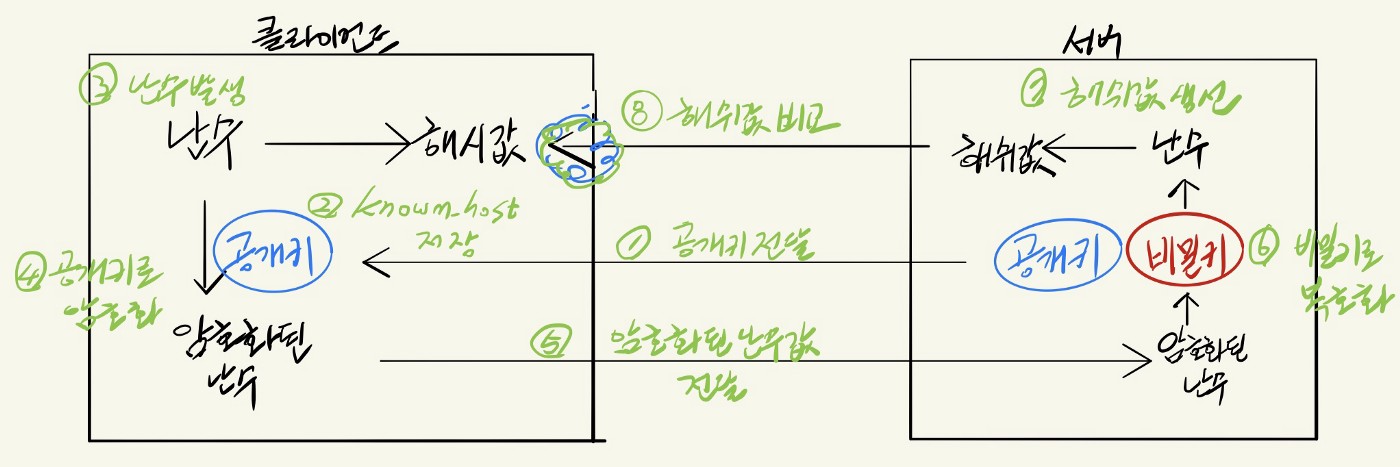 클라이언트
③ 난수발생
난수
해시값
② Knowm_host
저장
공개키
④ 공개키로
암호화
암호화된
난수
⑧ 해쉬값 비교
① 공개키 전달
⑤ 암호화된 난수값
전달
서버
해쉬값 생성
해쉬값
난수
공개키
비밀키
⑥ 비밀키로
복호화
암호화된
난수